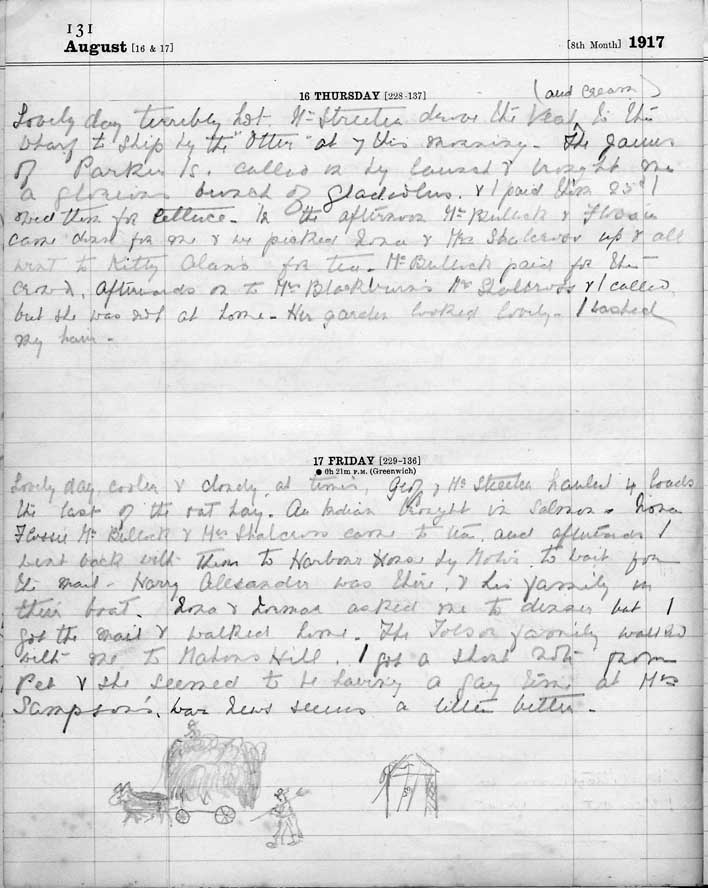 131
August [16 & 17] [8th Month] 1917
16 THURSDAY [228-137]
(and cream)
Lovely day terribly hot. Mr Streeter drove the Veal to the
wharf to ship by the "Otter" at 7 this morning. The James
of Parker Is. called in by launch & brought me
a glorious bunch of gladiolus, & I paid them 25¢ I
owed them for lettuce. In the afternoon Mr Bullock & Flossie
came down for me & we picked Zona & Mrs Shalcross up & all
went to Kitty Alan's for tea. Mr Bullock paid for the
crowd. Afterwards on to Mrs Blackburn's Mrs Shalcross & I called,
but she was not at home. Her garden looked lovely. I washed
my hair.
17 FRIDAY [229-136]
● 0h 21m P.M. (Greenwich)
Lovely day, cooler & cloudy at times, Geof & Mr Streeter hauled 4 loads
the last of the oat hay. An Indian brought in Salmon. Zona
Flossie Mr Bullock & Mrs Shalcross came to tea, and afterwards I
went back with them to Harbour House by Motor to wait for
the mail. Harry Alexander was there, & his family in
their boat. Zona & Norman asked me to dinner but I
got the mail & walked home. The Tolson family walked
with me to Mahons Hill. I got a short note from
Pet & she seemed to be having a gay time at Mrs
Sampson's. War News seems a little better.